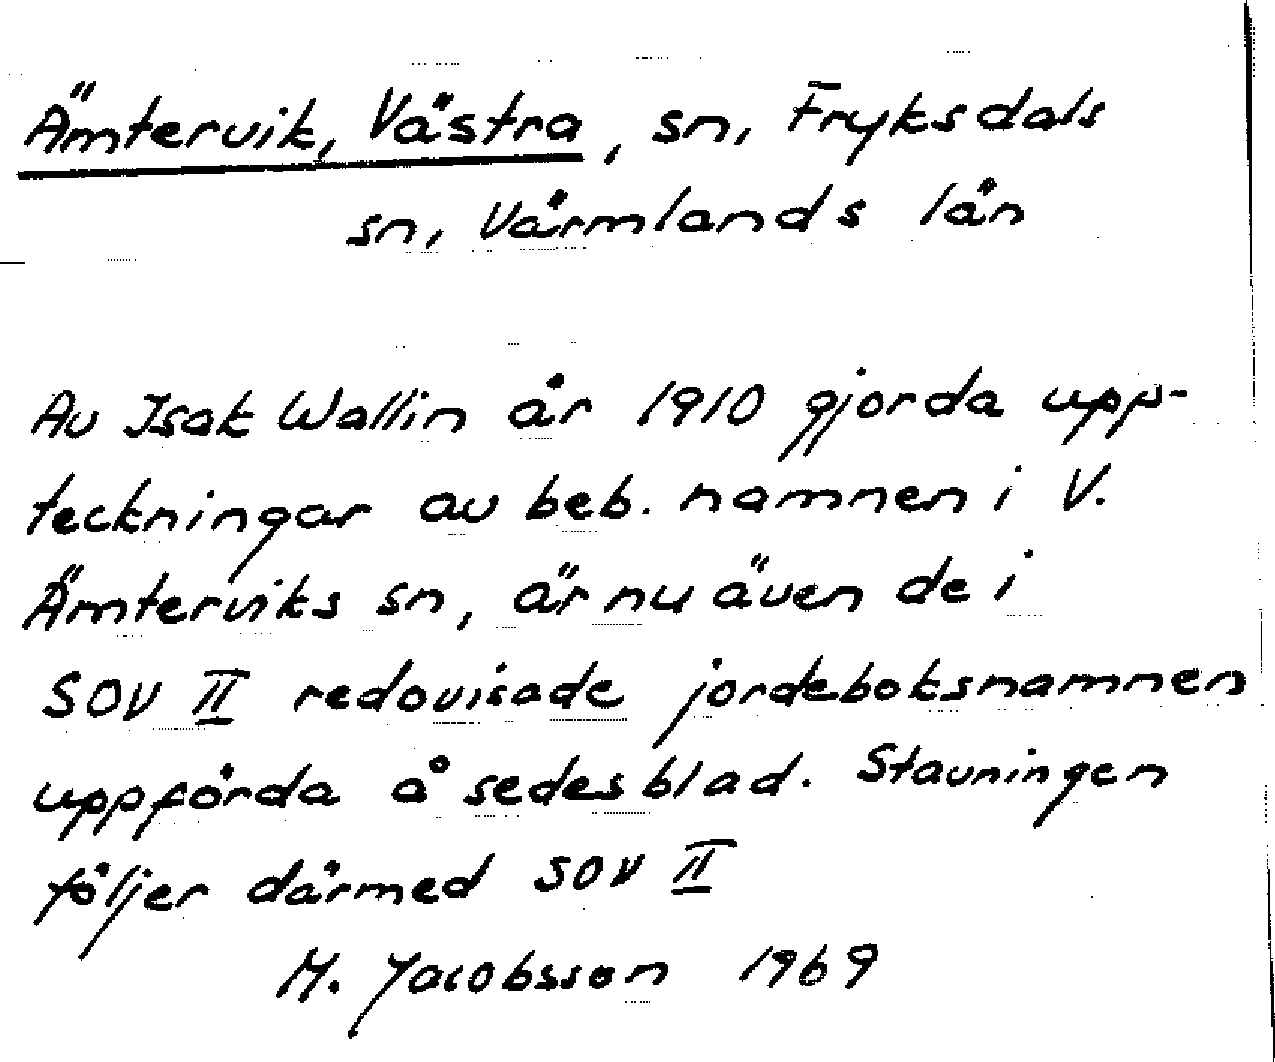 Ämtervik, Västra, sn, Fryksdals
sn, Värmlands län
Av Isak Wallin år 1910 gjorda upp-
teckningar av beb. namnen i V.
Ämterviks sn, är nu även de i
SOV II redovisade jordeboksnamnen
uppförda å sedesblad. Stavningen
följer därmed SOV II
M. Jacobsson 1969